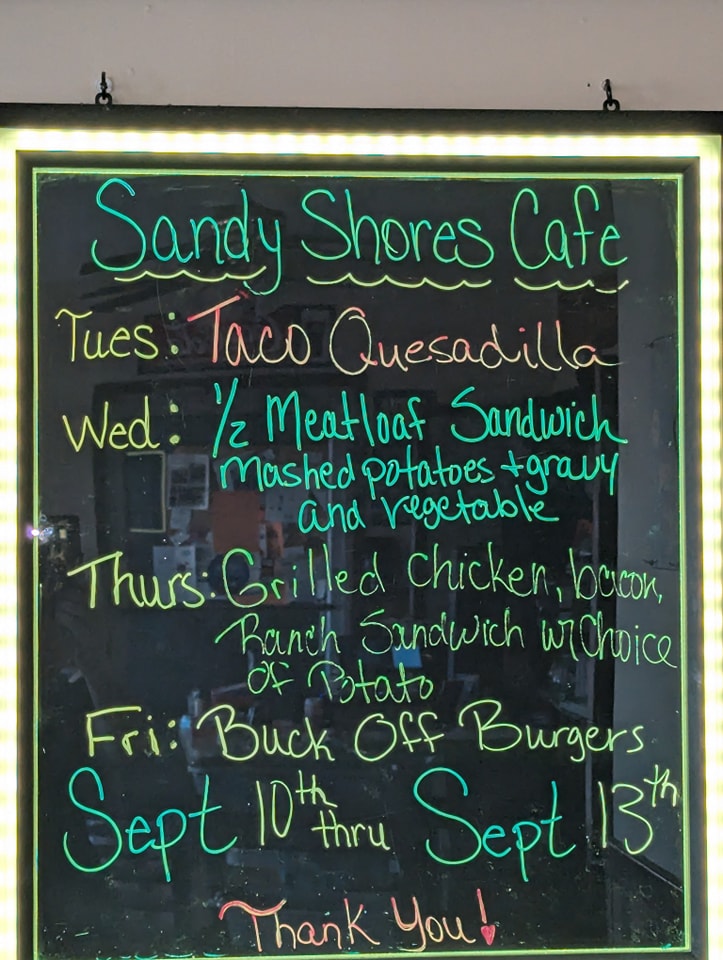 Sandy Shores Cafe
Tues: Taco Quesadilla
Wed: 1/2 Meatloaf Sandwich
Mashed potatoes + gravy
and vegetable
Thurs: Grilled Chicken, bacon,
Ranch Sandwich w/ Choice
Of Potato
Fri: Buck Off Burgers
Sept 10th thru Sept 13th
Thank You!